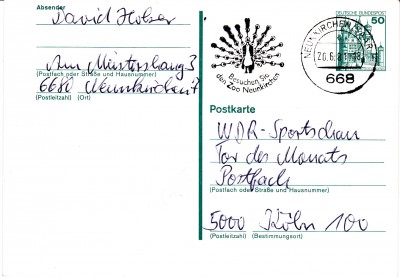 Absender
David Holzer
Am Müttershang 3
(Postfach oder Straße und Hausnummer)
6680 Neunkirchen 7
(Postleitzahl) (Ort)
Besuchen Sie
den Zoo Neunkirchen
NEUNKIRCHEN, SAAR
20.6.
668
DEUTSCHE BUNDESPOST
50
Postkarte
WDR-Sportschau
Tor des Monats
Postfach
(Postfach oder Straße und Hausnummer)
5000 Köln 100
(Postleitzahl) (Bestimmungsort)